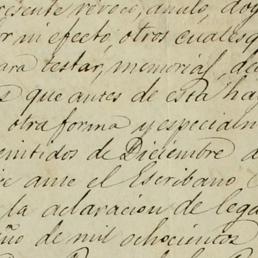 presente revoco, anulo, doy
por ni efecto, otros cualesq
para testar, memorias, de
s que antes de esta ha
otra forma y especialm
eintidos de Diciembre d
ante el Escribano
la aclaracion de lega
año de mil ochocientos